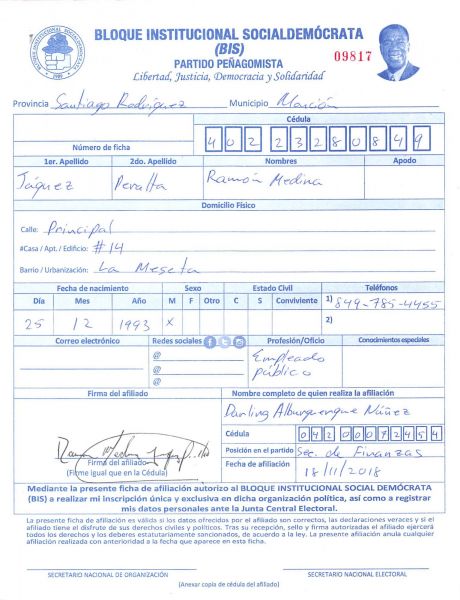 BLOQUE INSTITUCIONAL SOCIALDEMÓCRATA
(BIS)
PARTIDO PEÑAGOMISTA
Libertad, Justicia, Democracia y Solidaridad
09817
Provincia Santiago Rodríguez Municipio Monción
Cédula
Número de ficha 402 2328084 9
1er. Apellido 2do. Apellido Nombres Apodo
Jáquez Peralta Ramón Medina
Domicilio Físico
Calle: Principal
#Casa / Apt. / Edificio: #14
Barrio / Urbanización: La Meseta
Fecha de nacimiento Sexo Estado Civil Teléfonos
Día Mes Año M F Otro C S Conviviente 1) 849-785-4455
25 12 1993 X 2)
Correo electrónico Redes sociales Profesión/Oficio Conocimientos especiales
@ Empleado
@ público
@
Firma del afiliado Nombre completo de quien realiza la afiliación
Darling Alburquerque Núñez
Cédula 04200072454
Posición en el partido Sec. de Finanzas
Firma del afiliado Fecha de afiliación 18/11/2018
(Firme igual que en la Cédula)
Mediante la presente ficha de afiliación autorizo al BLOQUE INSTITUCIONAL SOCIAL DEMÓCRATA
(BIS) a realizar mi inscripción única y exclusiva en dicha organización política, así como a registrar
mis datos personales ante la Junta Central Electoral.
La presente ficha de afiliación es válida si los datos ofrecidos por el afiliado son correctos, las declaraciones veraces y si el
afiliado tiene el disfrute de sus derechos civiles y politicos. Tras su recepción, sello y firma autorizadas el afiliado ejercerá
todos los derechos y los deberes estatutariamente sancionados, de acuerdo a la ley. La presente afiliación anula cualquier
afiliación realizada con anterioridad a la fecha que aparece en esta ficha.
SECRETARIO NACIONAL DE ORGANIZACIÓN SECRETARIO NACIONAL ELECTORAL
(Anexar copia de cédula del afiliado)